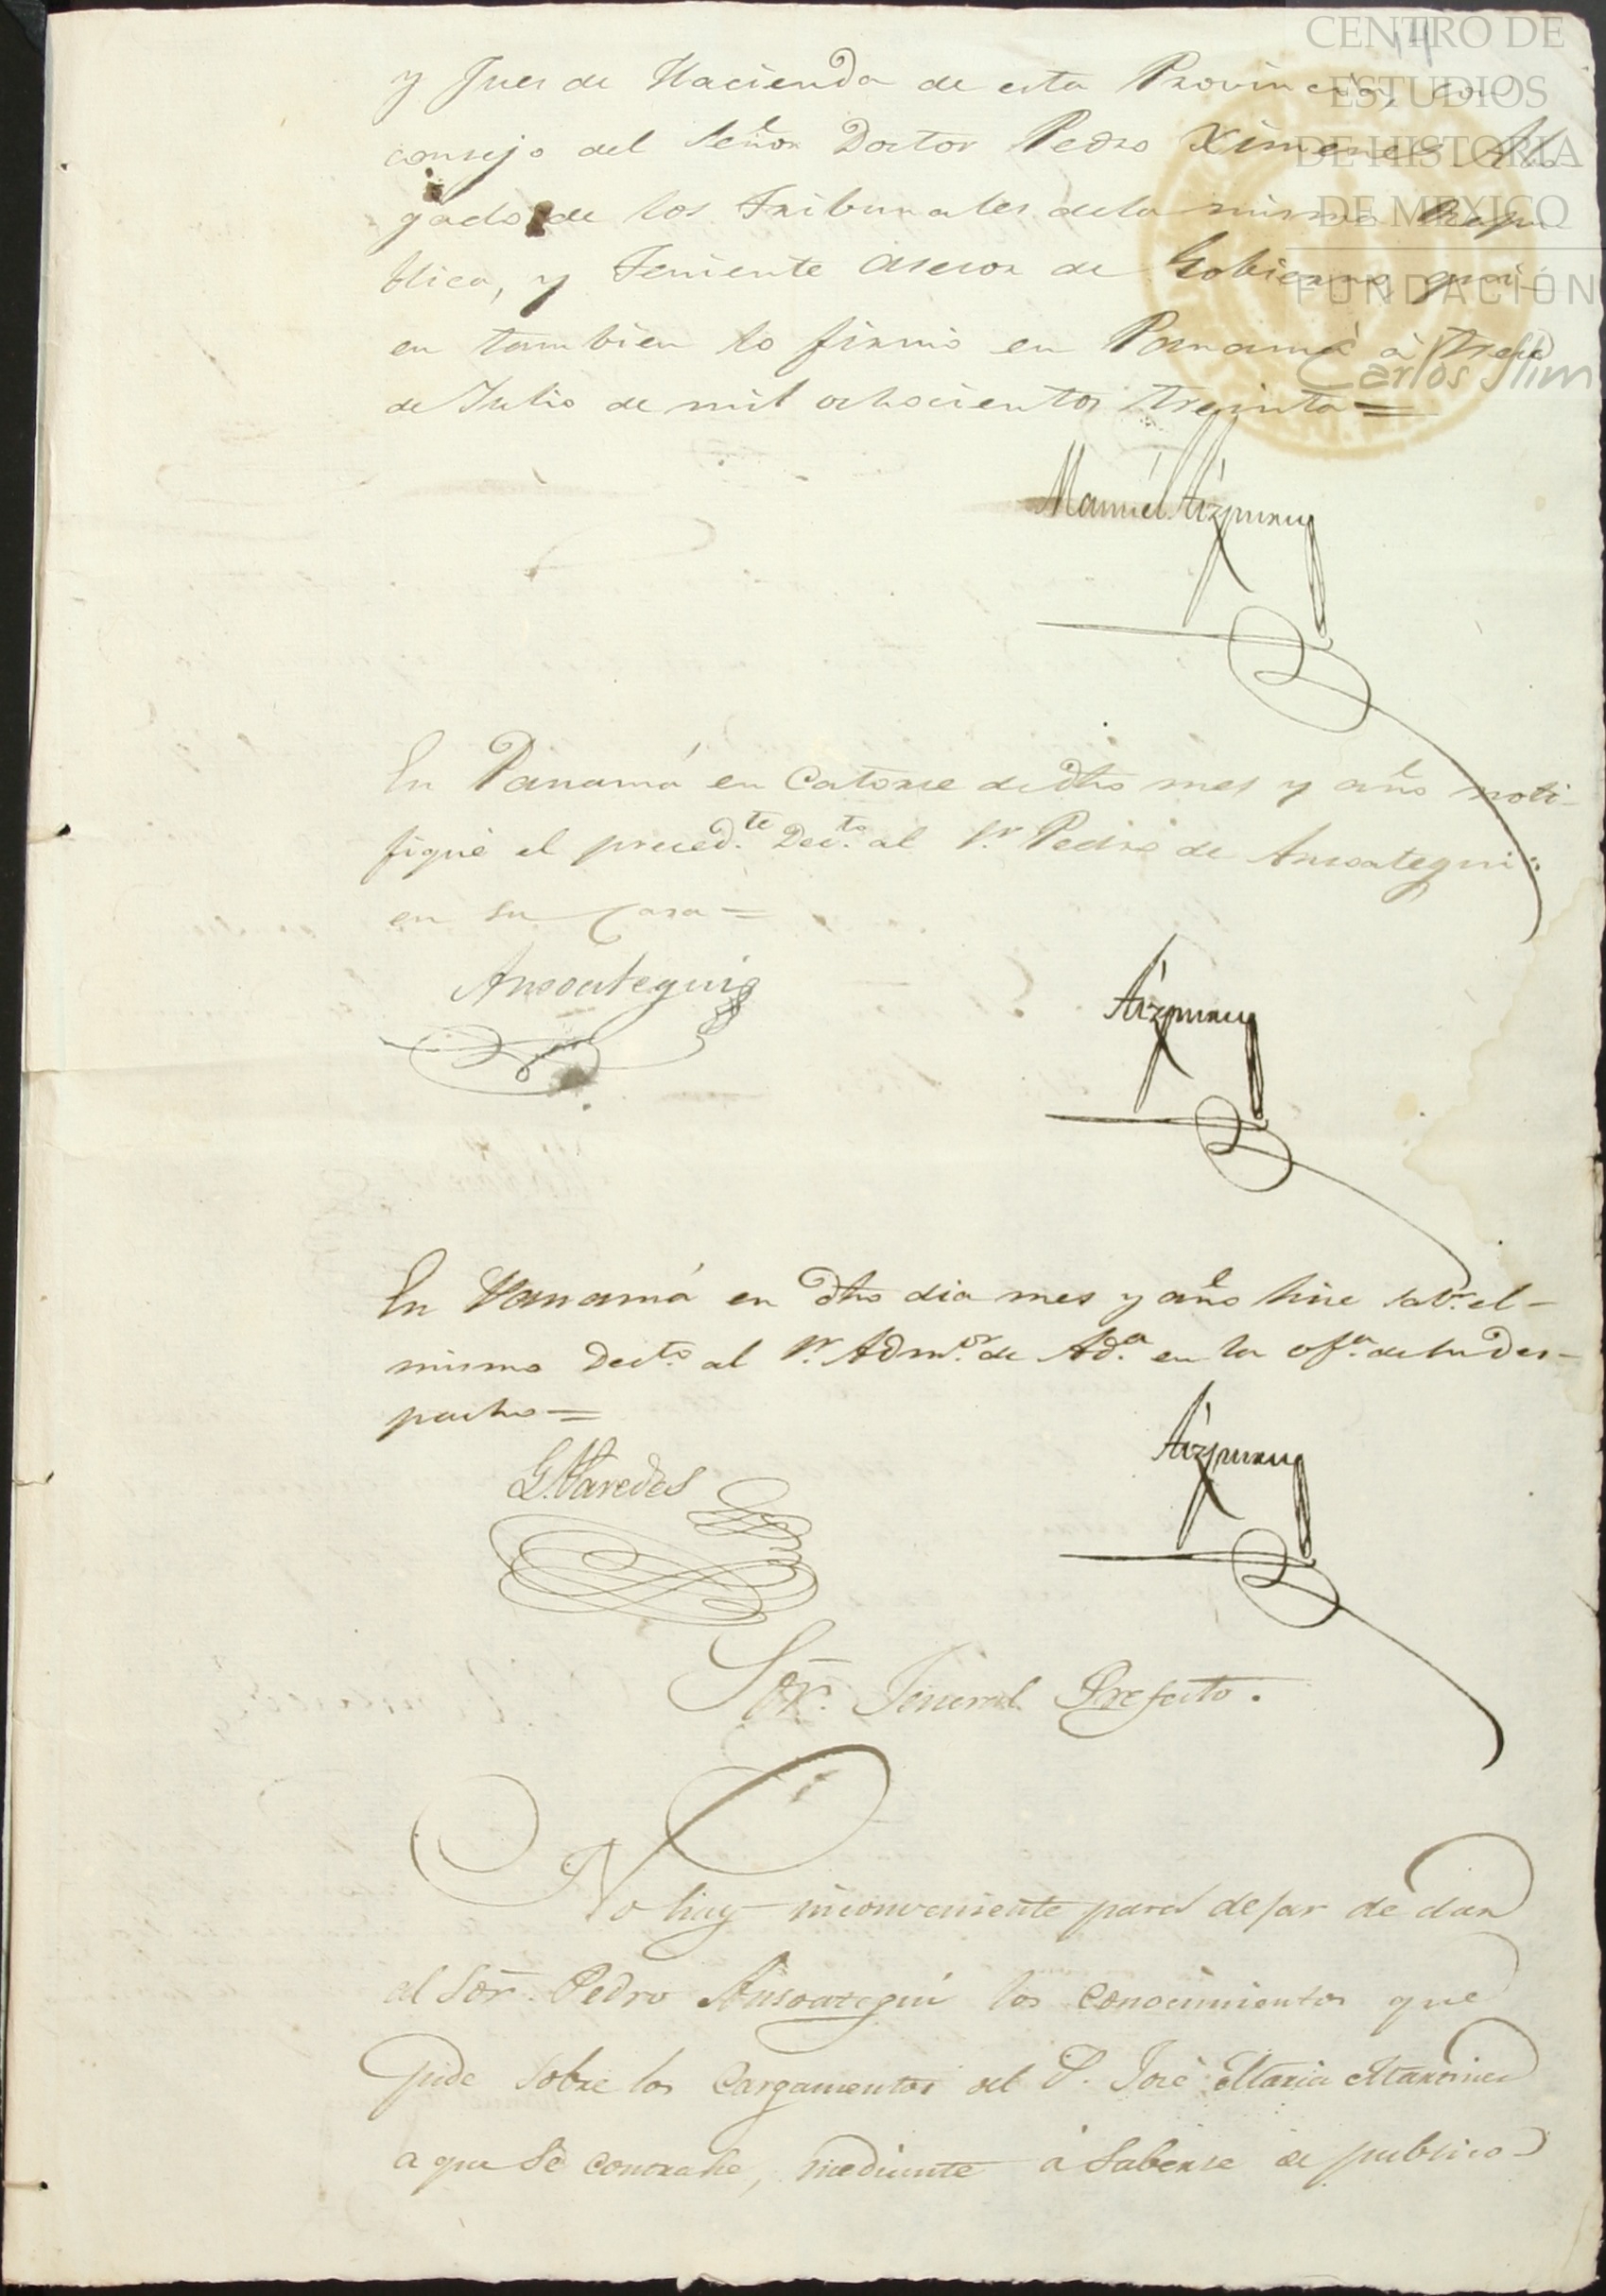 CENTRO DE
ESTUDIOS
DE HISTORIA
DE MEXICO
FUNDACIÓN
Carlos Slim
y Jues de Hacienda de esta Provincia, con
consejo del Señor Doctor Pedro Ximenes Abo
gado de los Tribunales dela misma Repu
blica, y Teniente Asesor de Gobierno qui-
en tambien lo firmó en Panamá à trese
de Julio de mil ochocientos treinta=
Manuel Aizpuru
En Panamá en Catorse de dho mes y año noti-
fiqué el preced.te Dec.to al S.r Pedro de Ansoategui
en su Casa=
Ansoategui
Aizpuru
En Panamá en dho dia mes y año hise sab.r el-
mismo Dec.to al S.r Adm.or de Ad.a en la of.a de su des-
pacho=
G. Paredes
Aizpuru
Sõr. Jeneral Prefecto.
No hay inconveniente para dejar de dar
al Sõr. Pedro Ansoategui los conocimientos que
pide sobre los Cargamentos del S. José Maria
a que se contrahe, mediante á saberse de publico